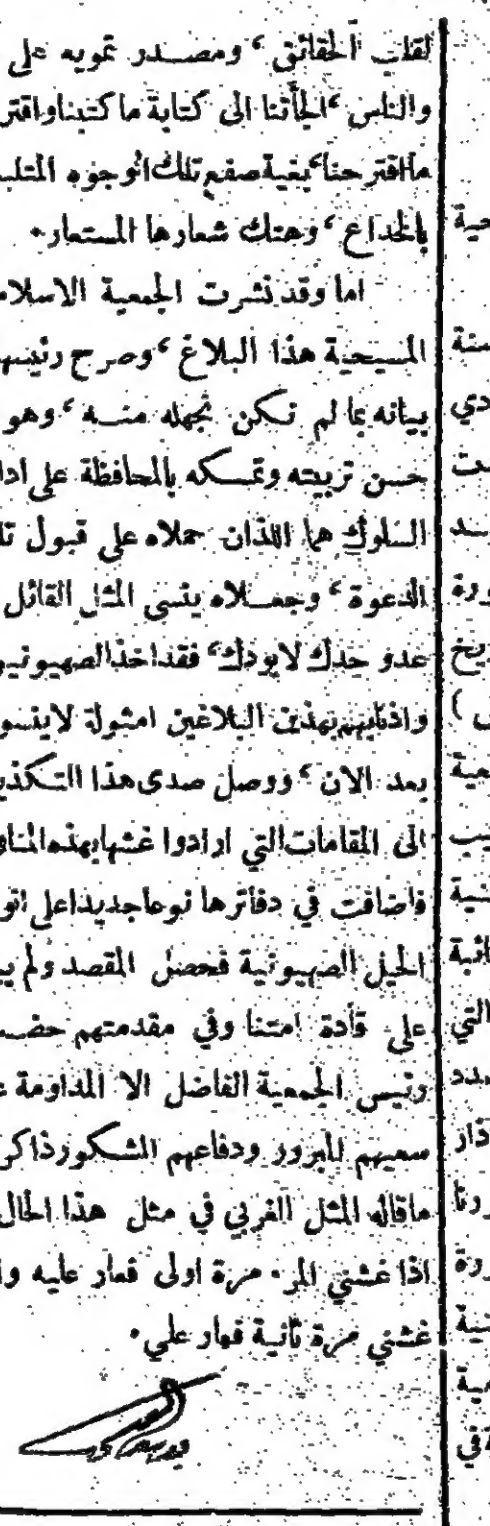 لقلب الحقائق، ومصدر تمويه على
والناس، الجأتنا الى كتابة ما كتبنا واقتر
ما اقترحنا، بغية صفع تلك الوجوه المتلب
بالخداع، وهتك شعارها المستعار.
اما وقد نشرت الجمعية الاسلام
المسيحية هذا البلاغ، وصرح رئيسها
ببيانه بما لم نكن نجهله منه، وهو
حسن تربيته وتمسكه بالمحافظة على ادا
السلوك هما اللذان حملاه على قبول تل
الدعوة، وجعلاه ينسى المثل القائل
عدو جدك لا يودك، فقد اخذ الصهيونيو
واذنابهم بهذين البلاغين امثولة لا ينسو
بعد الان، ووصل صدى هذا التكذي
الى المقامات التي ارادوا غشها بهذه المناو
فاضافت في دفاترها نوعا جديدا على انو
الحيل الصهيونية فحصل المقصد ولم يب
على قأدة امتنا وفي مقدمتهم حضـ
رئيس الجمعية الفاضل الا المداومة ع
سعيهم المبرور ودفاعهم المشكور ذاكر
ما قاله المثل الغربي في مثل هذا الحال
اذا غشني المرء مرة اولى فعار عليه وا
غشني مرة ثانية فعار علي.
حية
سنة
دي
ست
سد
ورة
ريخ
س )
عية
يب
نية
انبة
التي
مدد
ذار
ورنا
ورة
نية
مية
ةفي